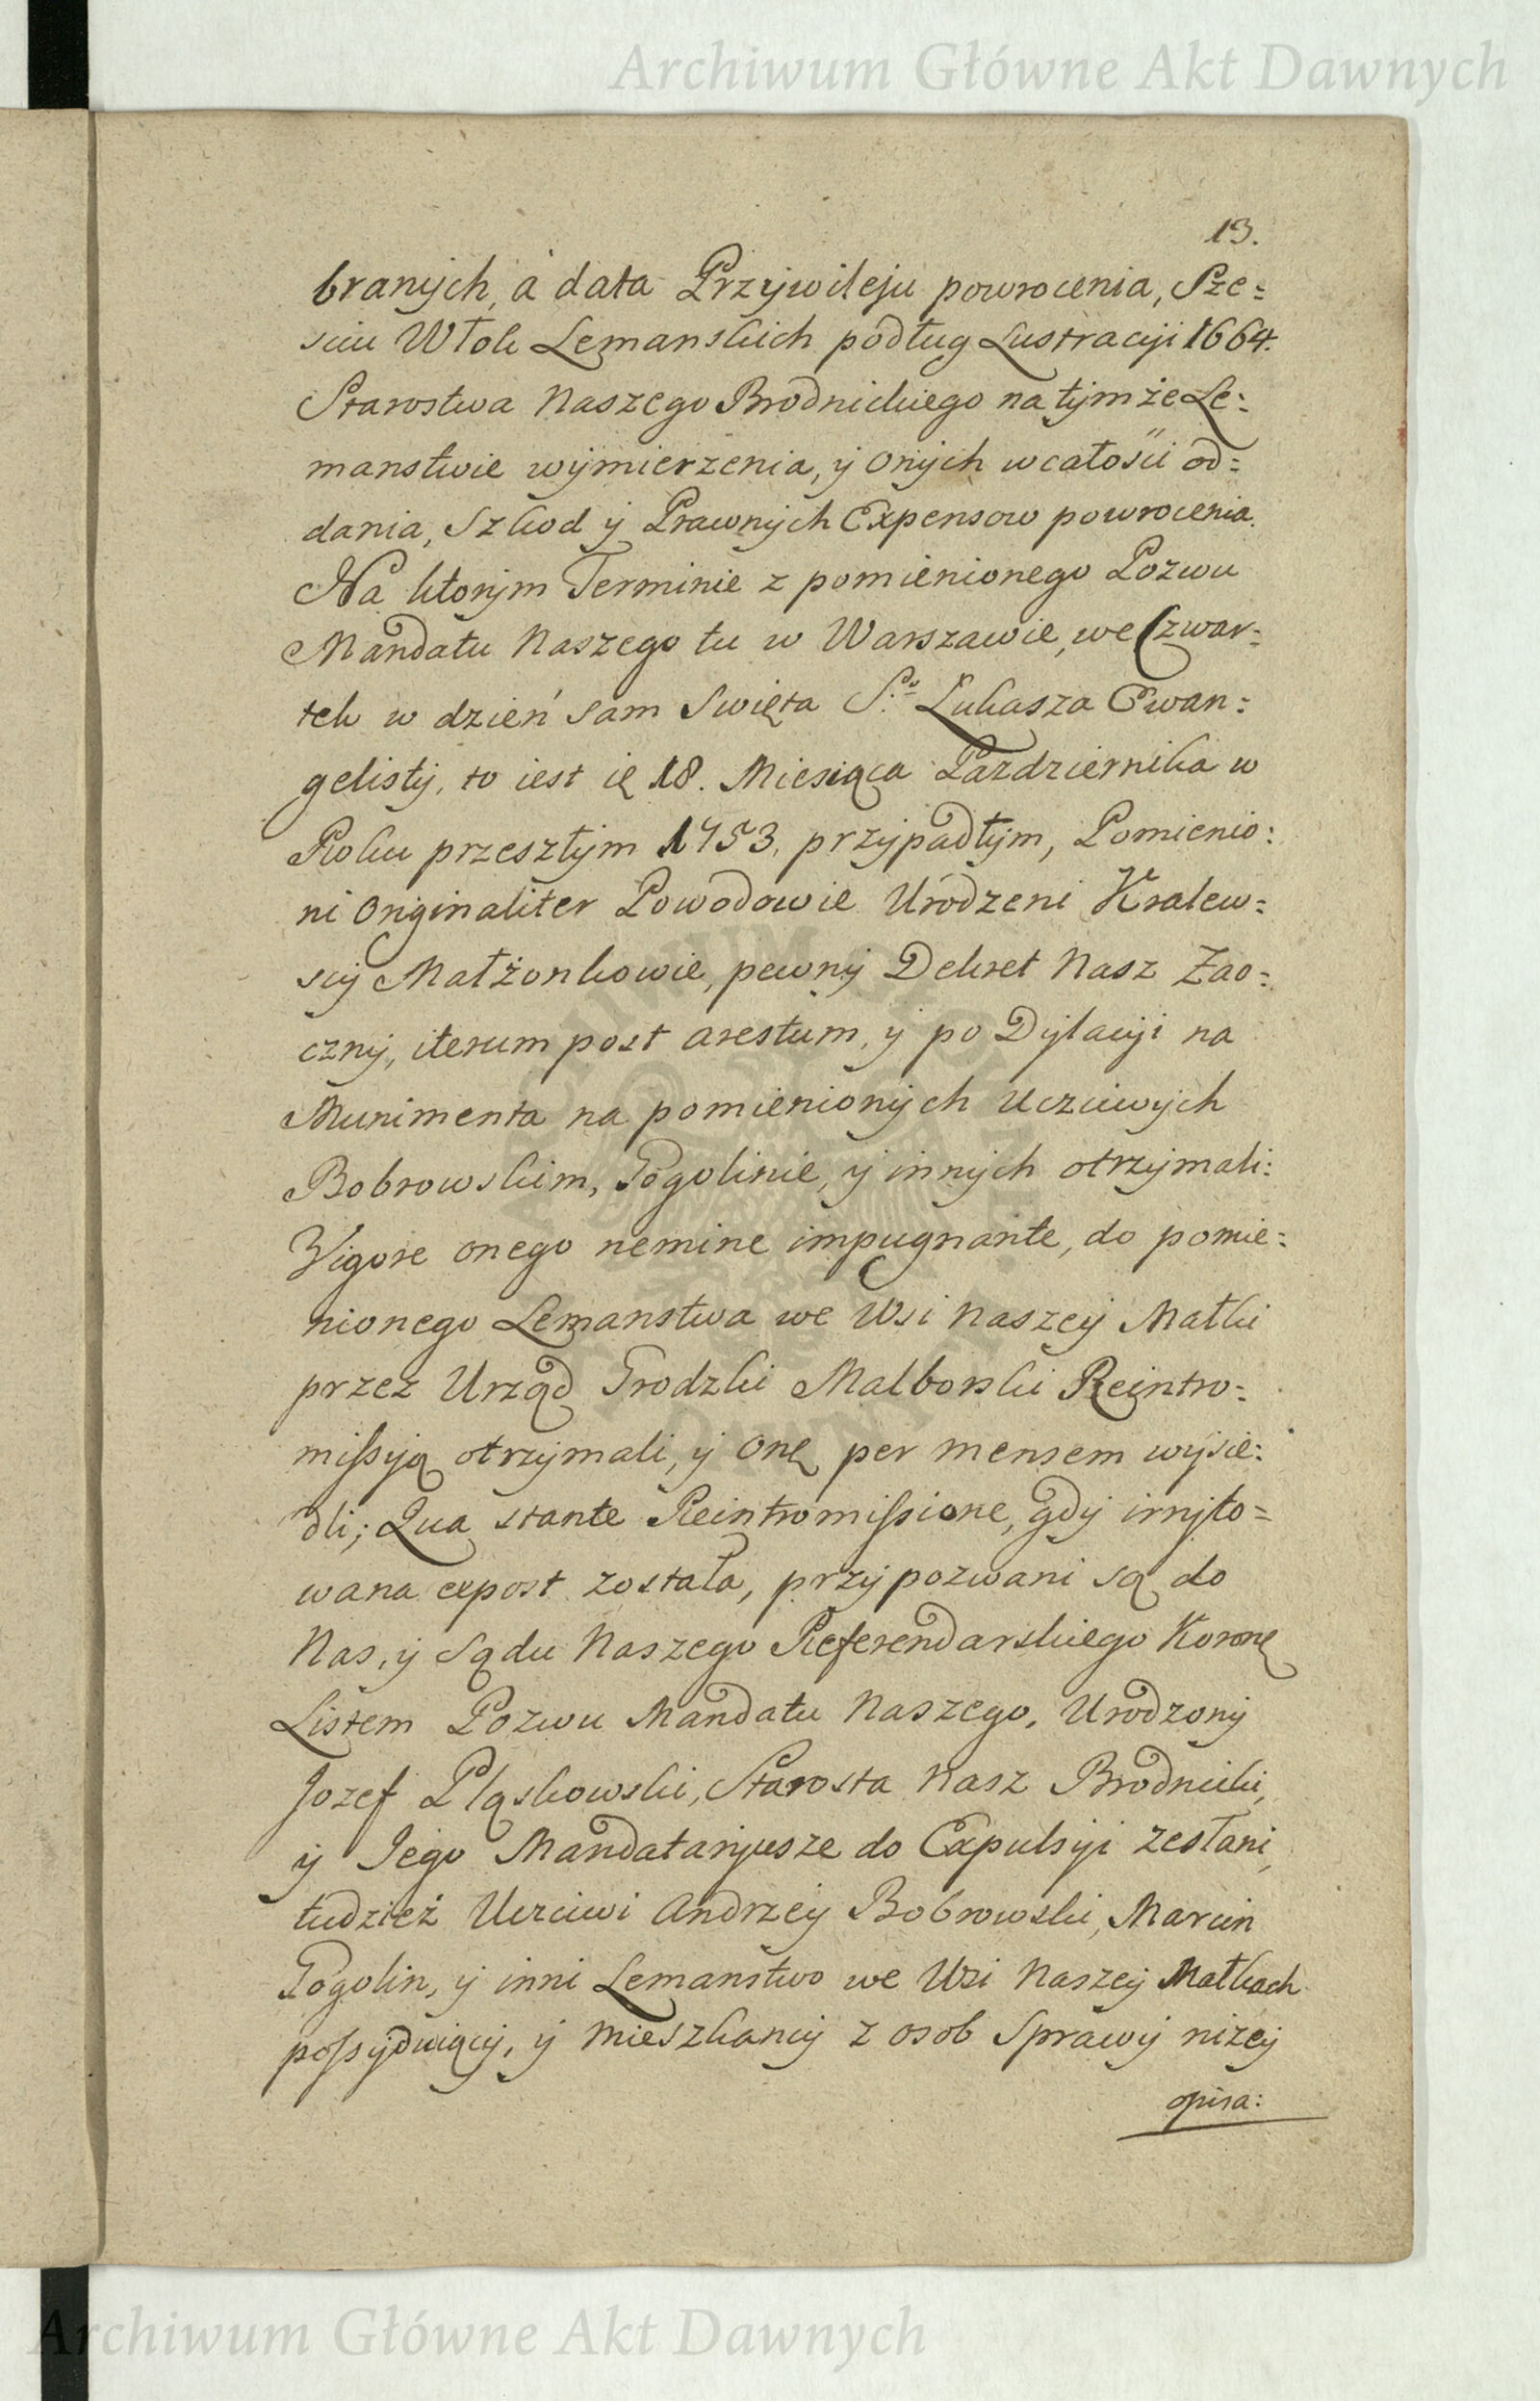 Archiwum Główne Akt Dawnych
13.
branych, à data Przywileju powrocenia, Sze=
sciu Włok Lemanskich podług Lustracyi 1664.
Starostwa Naszego Brodnickiego na tymże Le=
manstwie wymierzenia, y onych wcałości od=
dania, Szkod y Prawnych Expensow powrocenia.
Na ktorym Terminie z pomienionego Pozwu
Mandatu Naszego tu w Warszawie, we Czwar=
tek w dzień sam Swięta S.º Łukasza Ewan=
gelisty, to iest ię 18. Miesiąca Pazdziernika w
Roku przeszłym 1753. przypadłym, Pomienio=
ni Originaliter Powodowie Urodzeni Kralew=
scy Małżonkowie, pewny Dekret Nasz Zao=
czny, iterum post arestum, y po Dylacyi na
Munimenta na pomienionych Uczciwych
Bobrowskim, Gogolinie, y innych otrzymali:
Vigore onego nemine impugnante, do pomie=
nionego Lemanstwa we Wsi Naszey Małki
przez Urząd Grodzki Malborski Reintro=
missyą otrzymali, y onę per mensem wysie=
dli; Qua stante Reintromissione, gdy irryto=
wana expost została, przypozwani są do
Nas, y Sądu Naszego Referendarskiego Koronę
Listem Pozwu Mandatu Naszego, Urodzony
Jozef Pląskowski, Starosta Nasz Brodnicki,
y Jego Mandataryusze do Expulsyi zesłani,
tudzież Uczciwi Andrzey Bobrowski, Marcin
Gogolin, y inni Lemanstwo we Wsi Naszey Małkach
possyduiący, y Mieszkancy z osob Sprawy niżey
opisa:
Archiwum Główne Akt Dawnych